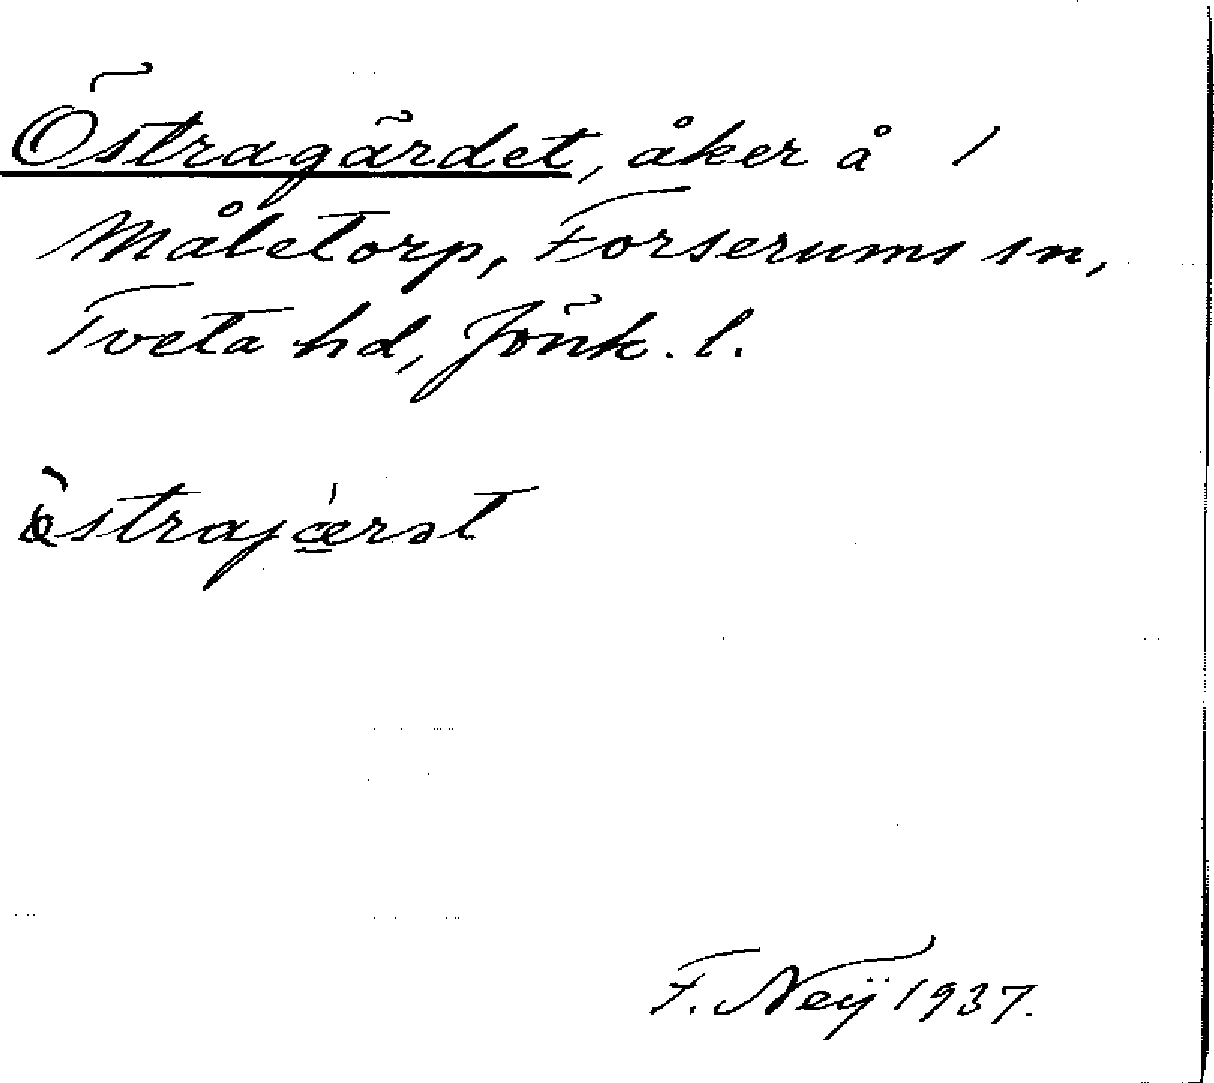 Östragärdet, åker å /
Måletorp, Forserums sn,
Tveta hd, Jönk. l.
östrajǽ̲rət
F. Neÿ 1937.